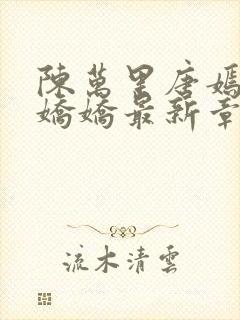 陳萬里唐嫣
嬌嬌最新章
流木清雲